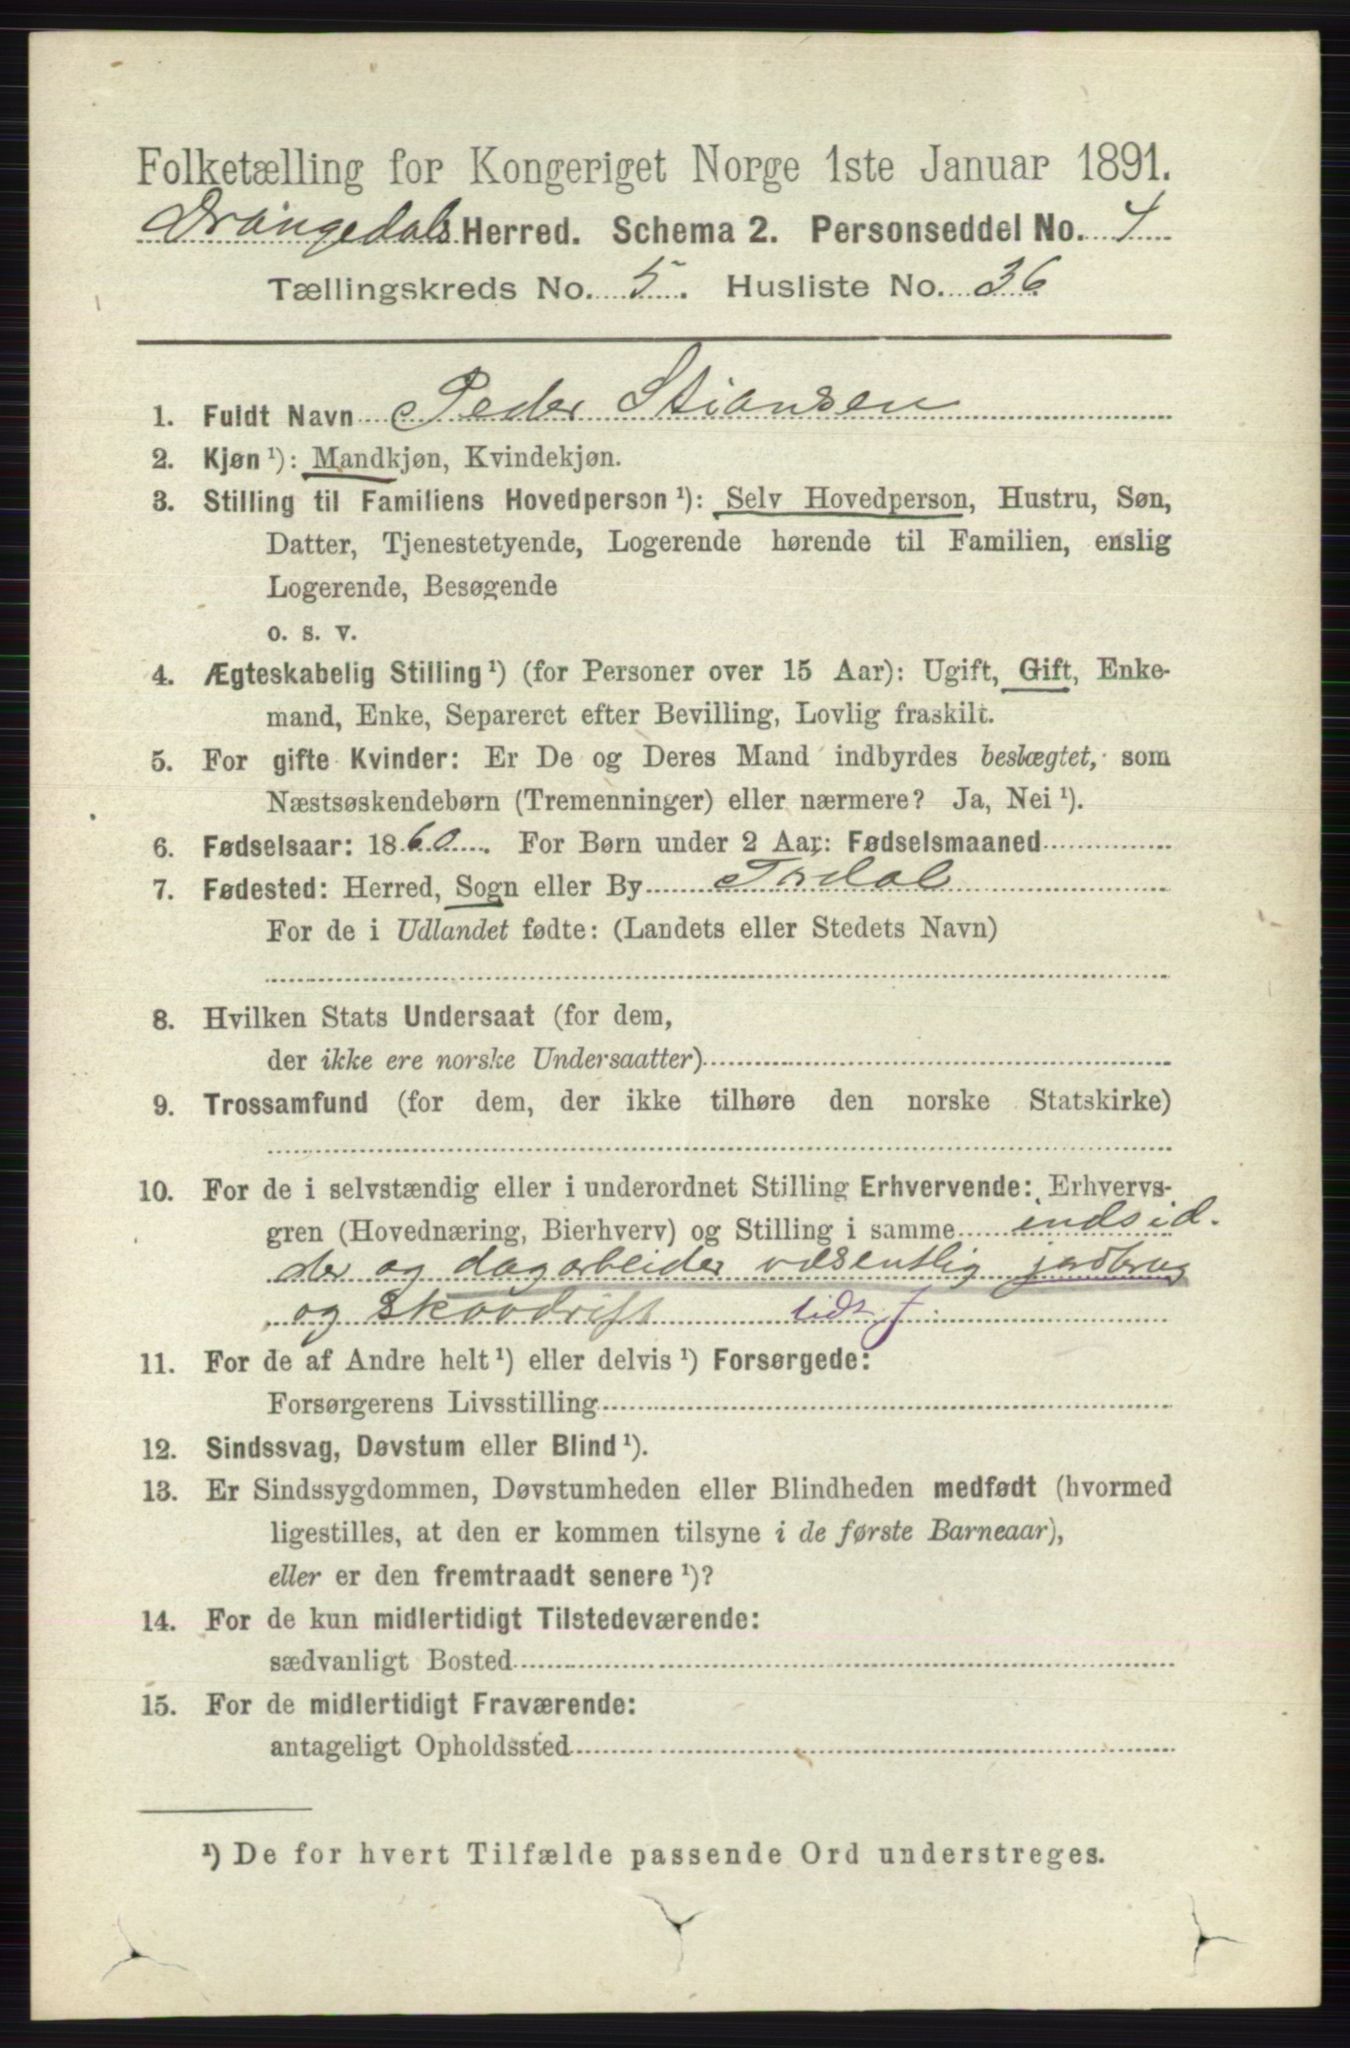 Folketælling for Kongeriget Norge 1ste Januar 1891.
Drangedals Herred. Schema 2. Personseddel No. 1
Tællingskreds No. 5. Husliste No. 36
1. Fuldt Navn Peder Stiansen
2. Kjøn ¹): Mandkjøn, Kvindekjøn.
3. Stilling til Familiens Hovedperson ¹): Selv Hovedperson, Hustru, Søn,
Datter, Tjenestetyende, Logerende hørende til Familien, enslig
Logerende, Besøgende
o. s. v.
4. Ægteskabelig Stilling ¹) (for Personer over 15 Aar): Ugift, Gift, Enke-
mand, Enke, Separeret efter Bevilling, Lovlig fraskilt.
5. For gifte Kvinder: Er De og Deres Mand indbyrdes beslægtet, som
Næstsøskendebørn (Tremenninger) eller nærmere? Ja, Nei ¹).
6. Fødselsaar: 1860. For Børn under 2 Aar: Fødselsmaaned
7. Fødested: Herred, Sogn eller By Tørdal
For de i Udlandet fødte: (Landets eller Stedets Navn)
8. Hvilken Stats Undersaat (for dem,
der ikke ere norske Undersaatter)
9. Trossamfund (for dem, der ikke tilhøre den norske Statskirke)
10. For de i selvstændig eller i underordnet Stilling Erhvervende: Erhvervs-
gren (Hovednæring, Bierhverv) og Stilling i samme indsid.
der og dagarbeider væsentlig jordbrug
og skovdrift lidt J.
11. For de af Andre helt ¹) eller delvis ¹) Forsørgede:
Forsørgerens Livsstilling
12. Sindssvag, Døvstum eller Blind ¹).
13. Er Sindssygdommen, Døvstumheden eller Blindheden medfødt (hvormed
ligestilles, at den er kommen tilsyne i de første Barneaar),
eller er den fremtraadt senere ¹)?
14. For de kun midlertidigt Tilstedeværende:
sædvanligt Bosted
15. For de midlertidigt Fraværende:
antageligt Opholdssted
¹) De for hvert Tilfælde passende Ord understreges.